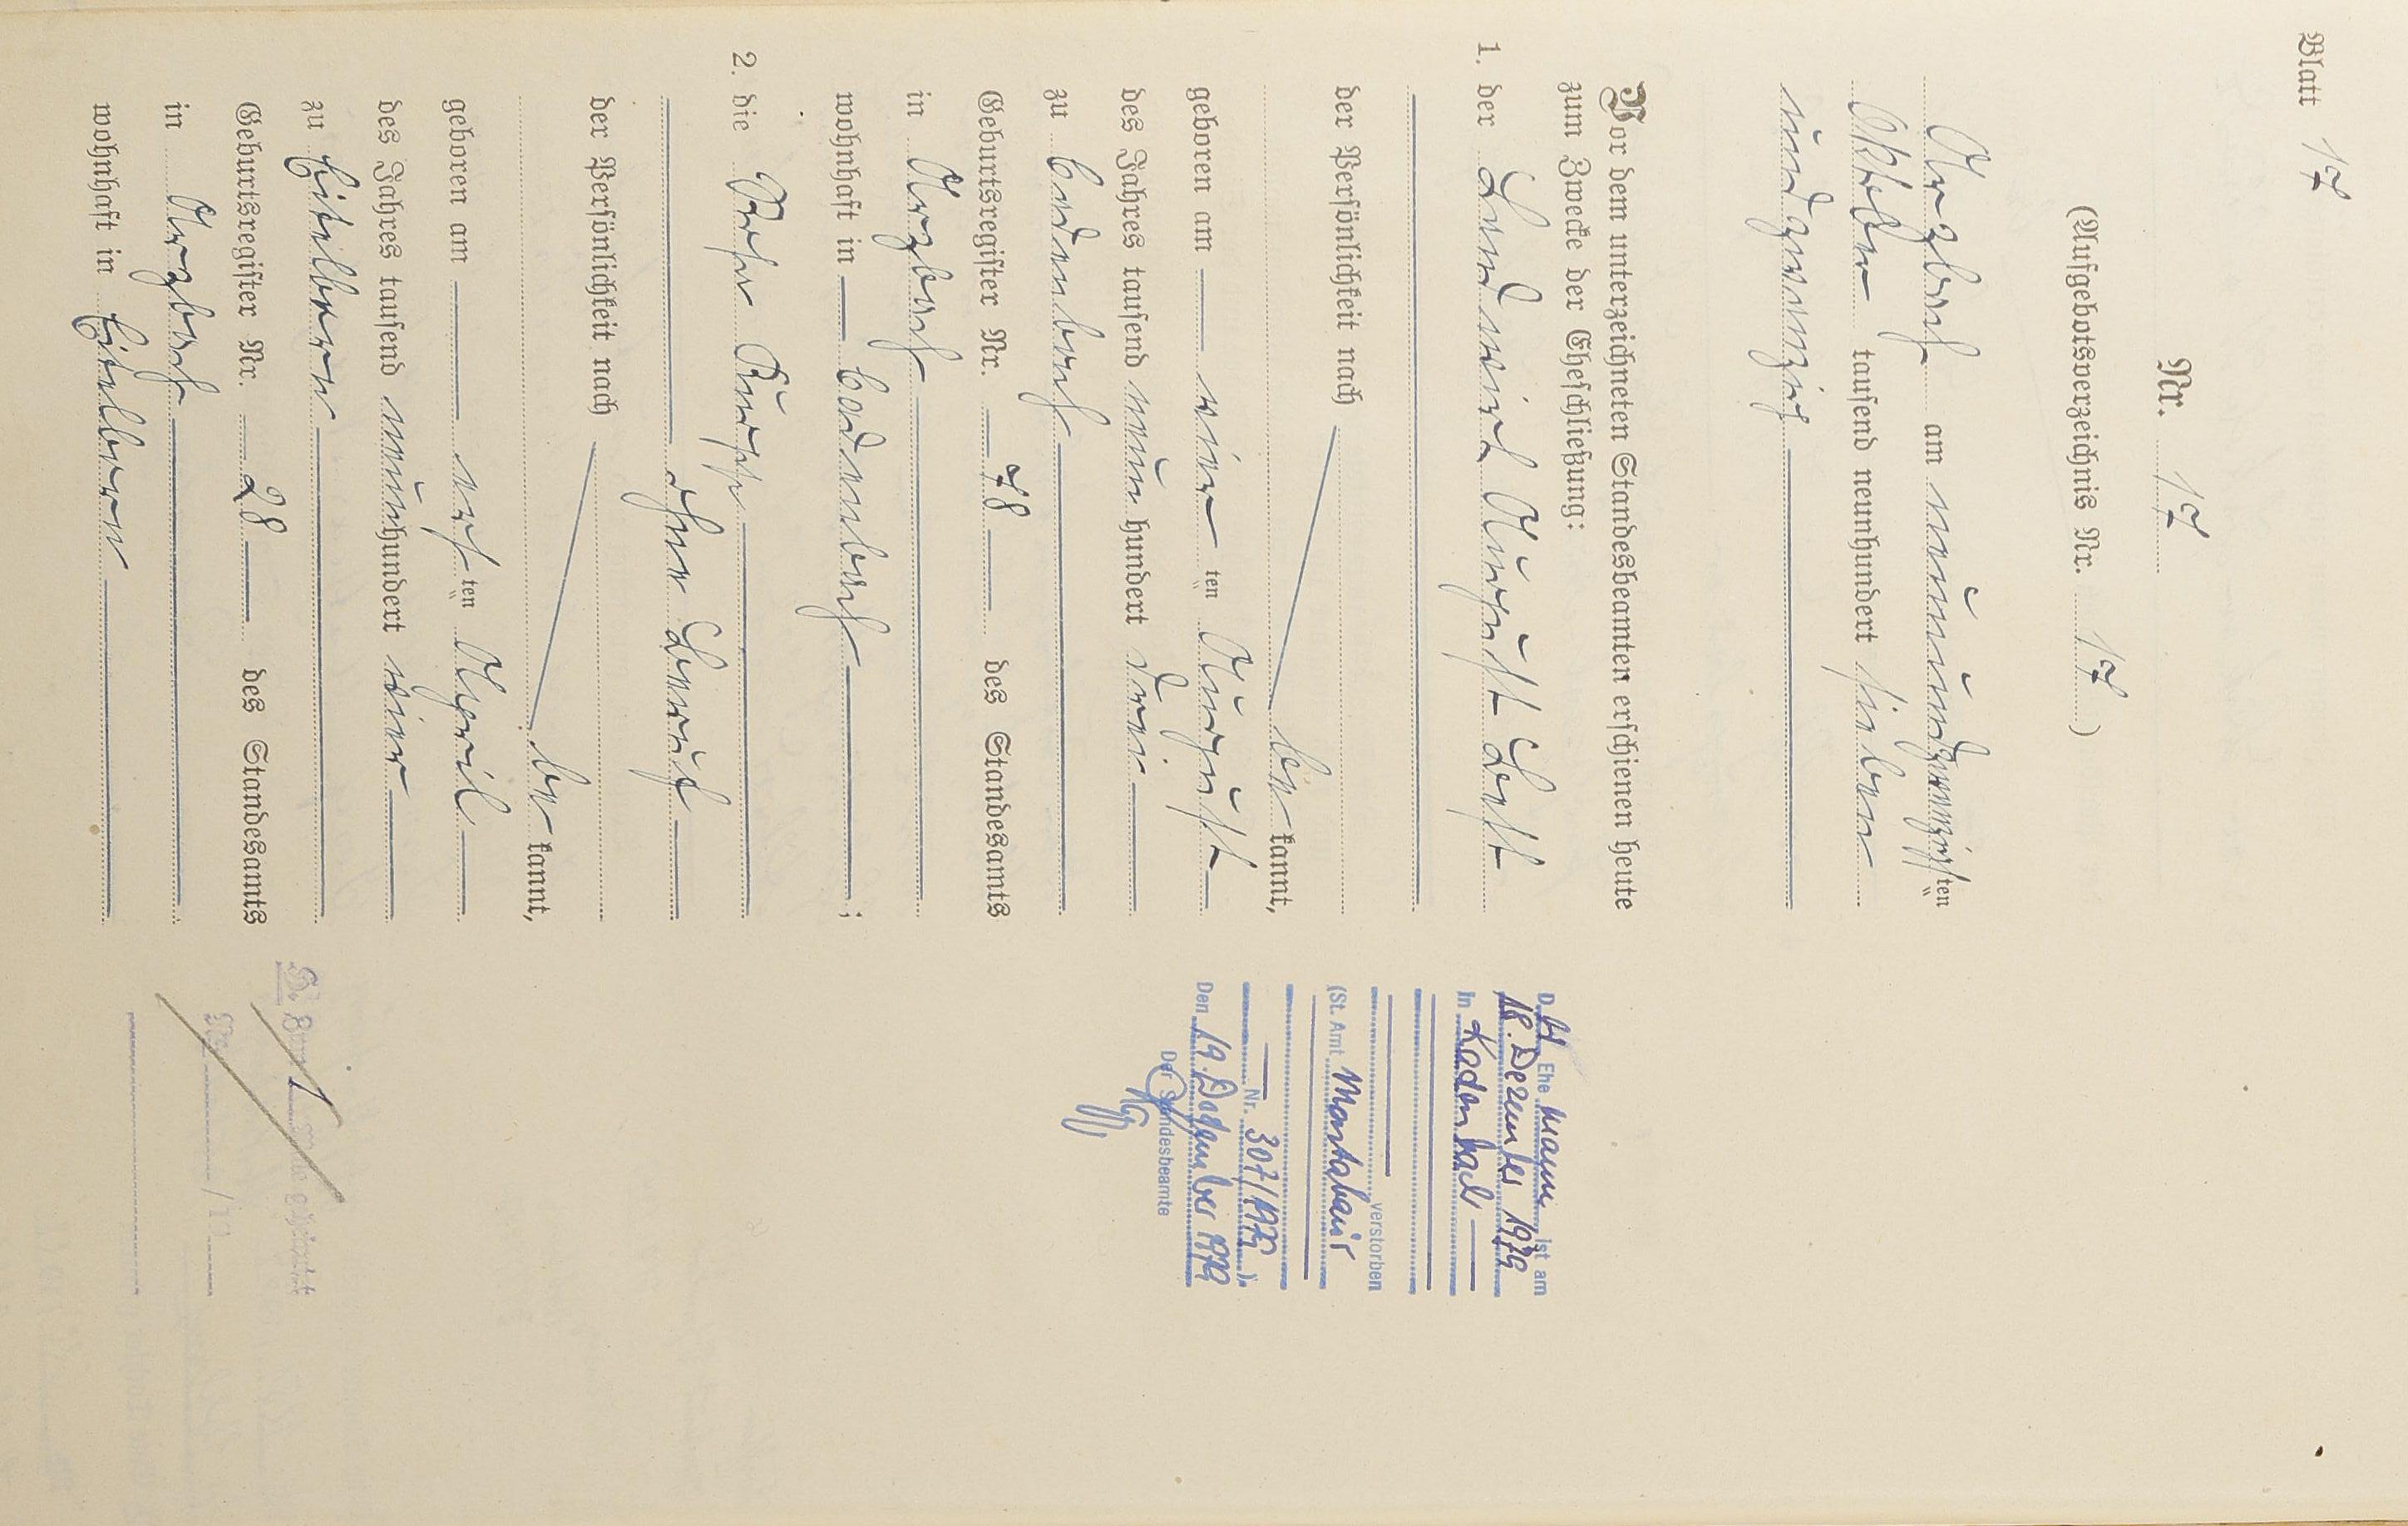 Blatt 17
Nr. 17
(Aufgebotsverzeichnis Nr. 17)
Arzbach am neunundzwanzigsten
Oktober tausend neunhundert sieben
undzwanzig
Vor dem unterzeichneten Standesbeamten erschienen heute
zum Zwecke der Eheschließung:
1. der Landwirt August
der Persönlichkeit nach
be kannt,
geboren am vier ten August
des Jahres tausend neun hundert drei
zu Cadenbach
Geburtsregister Nr. 78 des Standesamts
in Arzbach
wohnhaft in Cadenbach;
2. die
ohne Beruf
der Persönlichkeit nach
be kannt,
geboren am acht ten April
des Jahres tausend neunhundert vier
zu Eitelborn
Geburtsregister Nr. 28 des Standesamts
in Arzbach
wohnhaft in Eitelborn
D. Ehemann ist am
18. Dezember 1979
in Kadenbach
verstorben
(St. Amt Montabaur
Nr. 307/1979).
Den 19. Dezember 1979
Der Standesbeamte